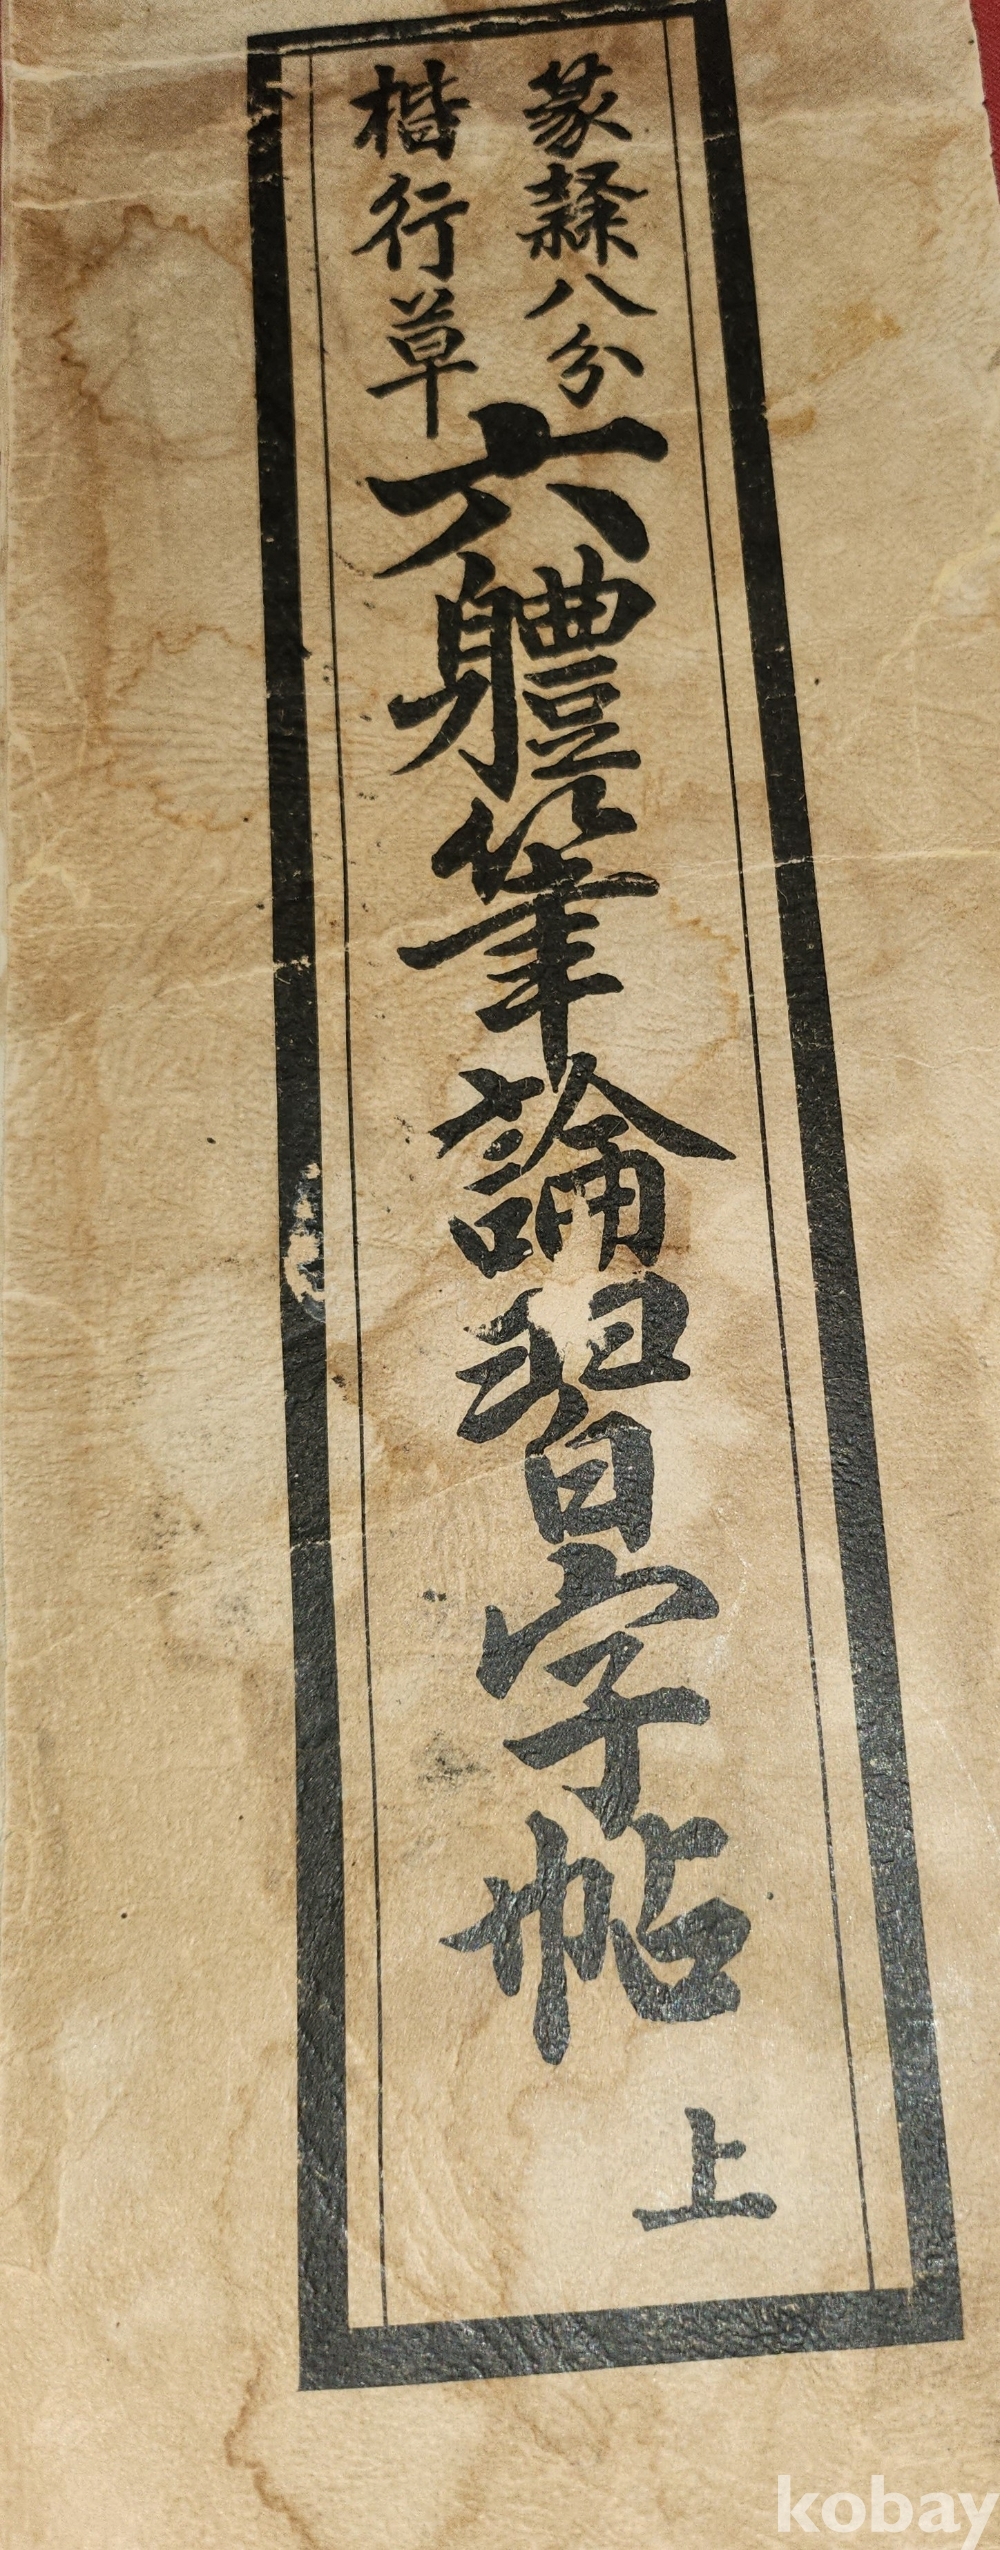 篆隸八分
楷行草
六軆筆論習字帖
上
kobay